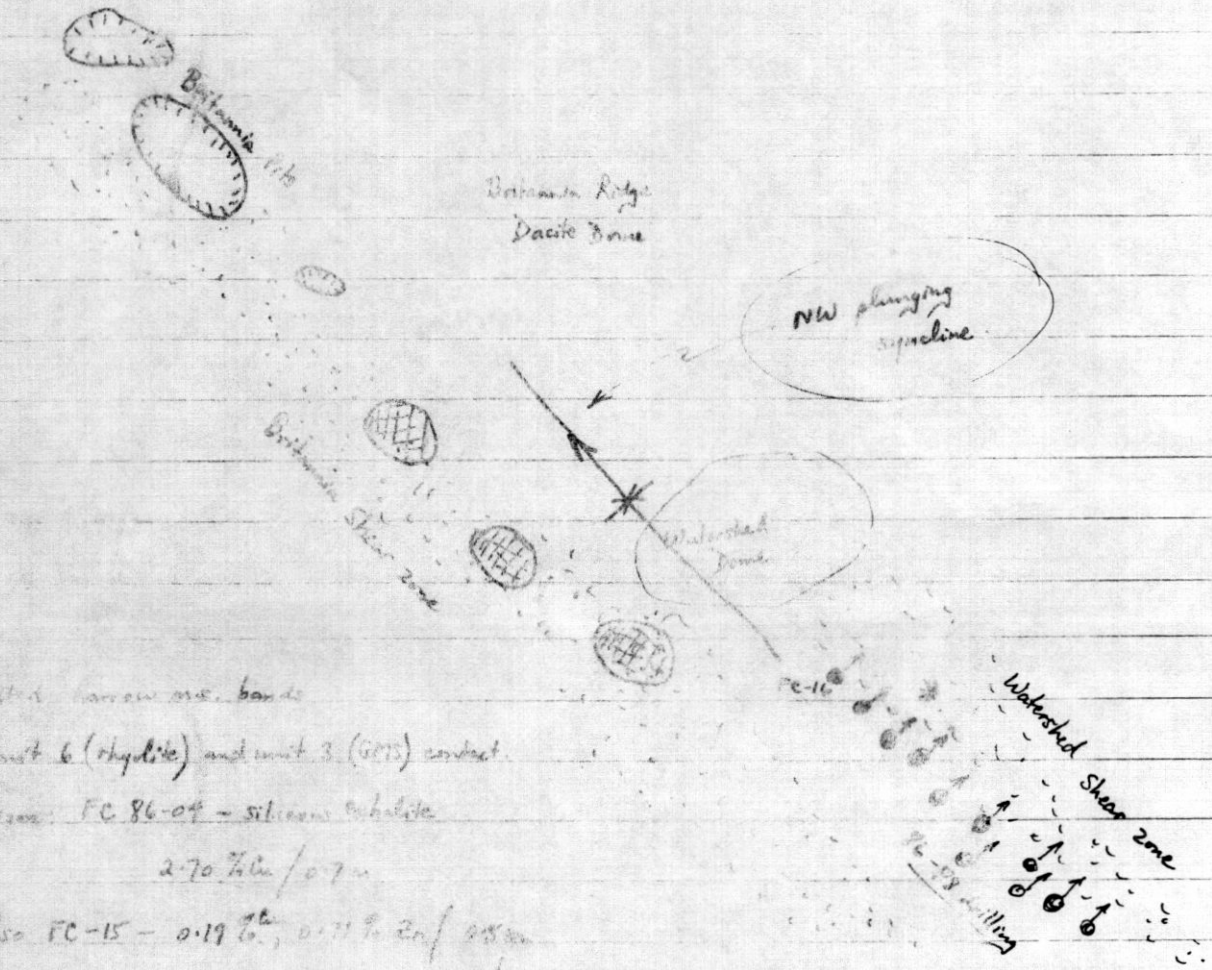 Britannia Pits
Britannia Ridge
Dacite Dome
NW plunging
syncline
Britannia
Shear zone
Watershed
Dome
FC-16
Watershed Shear zone
drilling
narrow bands
6 (rhyolite) and unit 3 (GPTS) contact.
FC 86-04 - siliceous exhalite
2.70 % Cu / 0.7 m
FC-15 - 0.19 % Cu, % Zn /